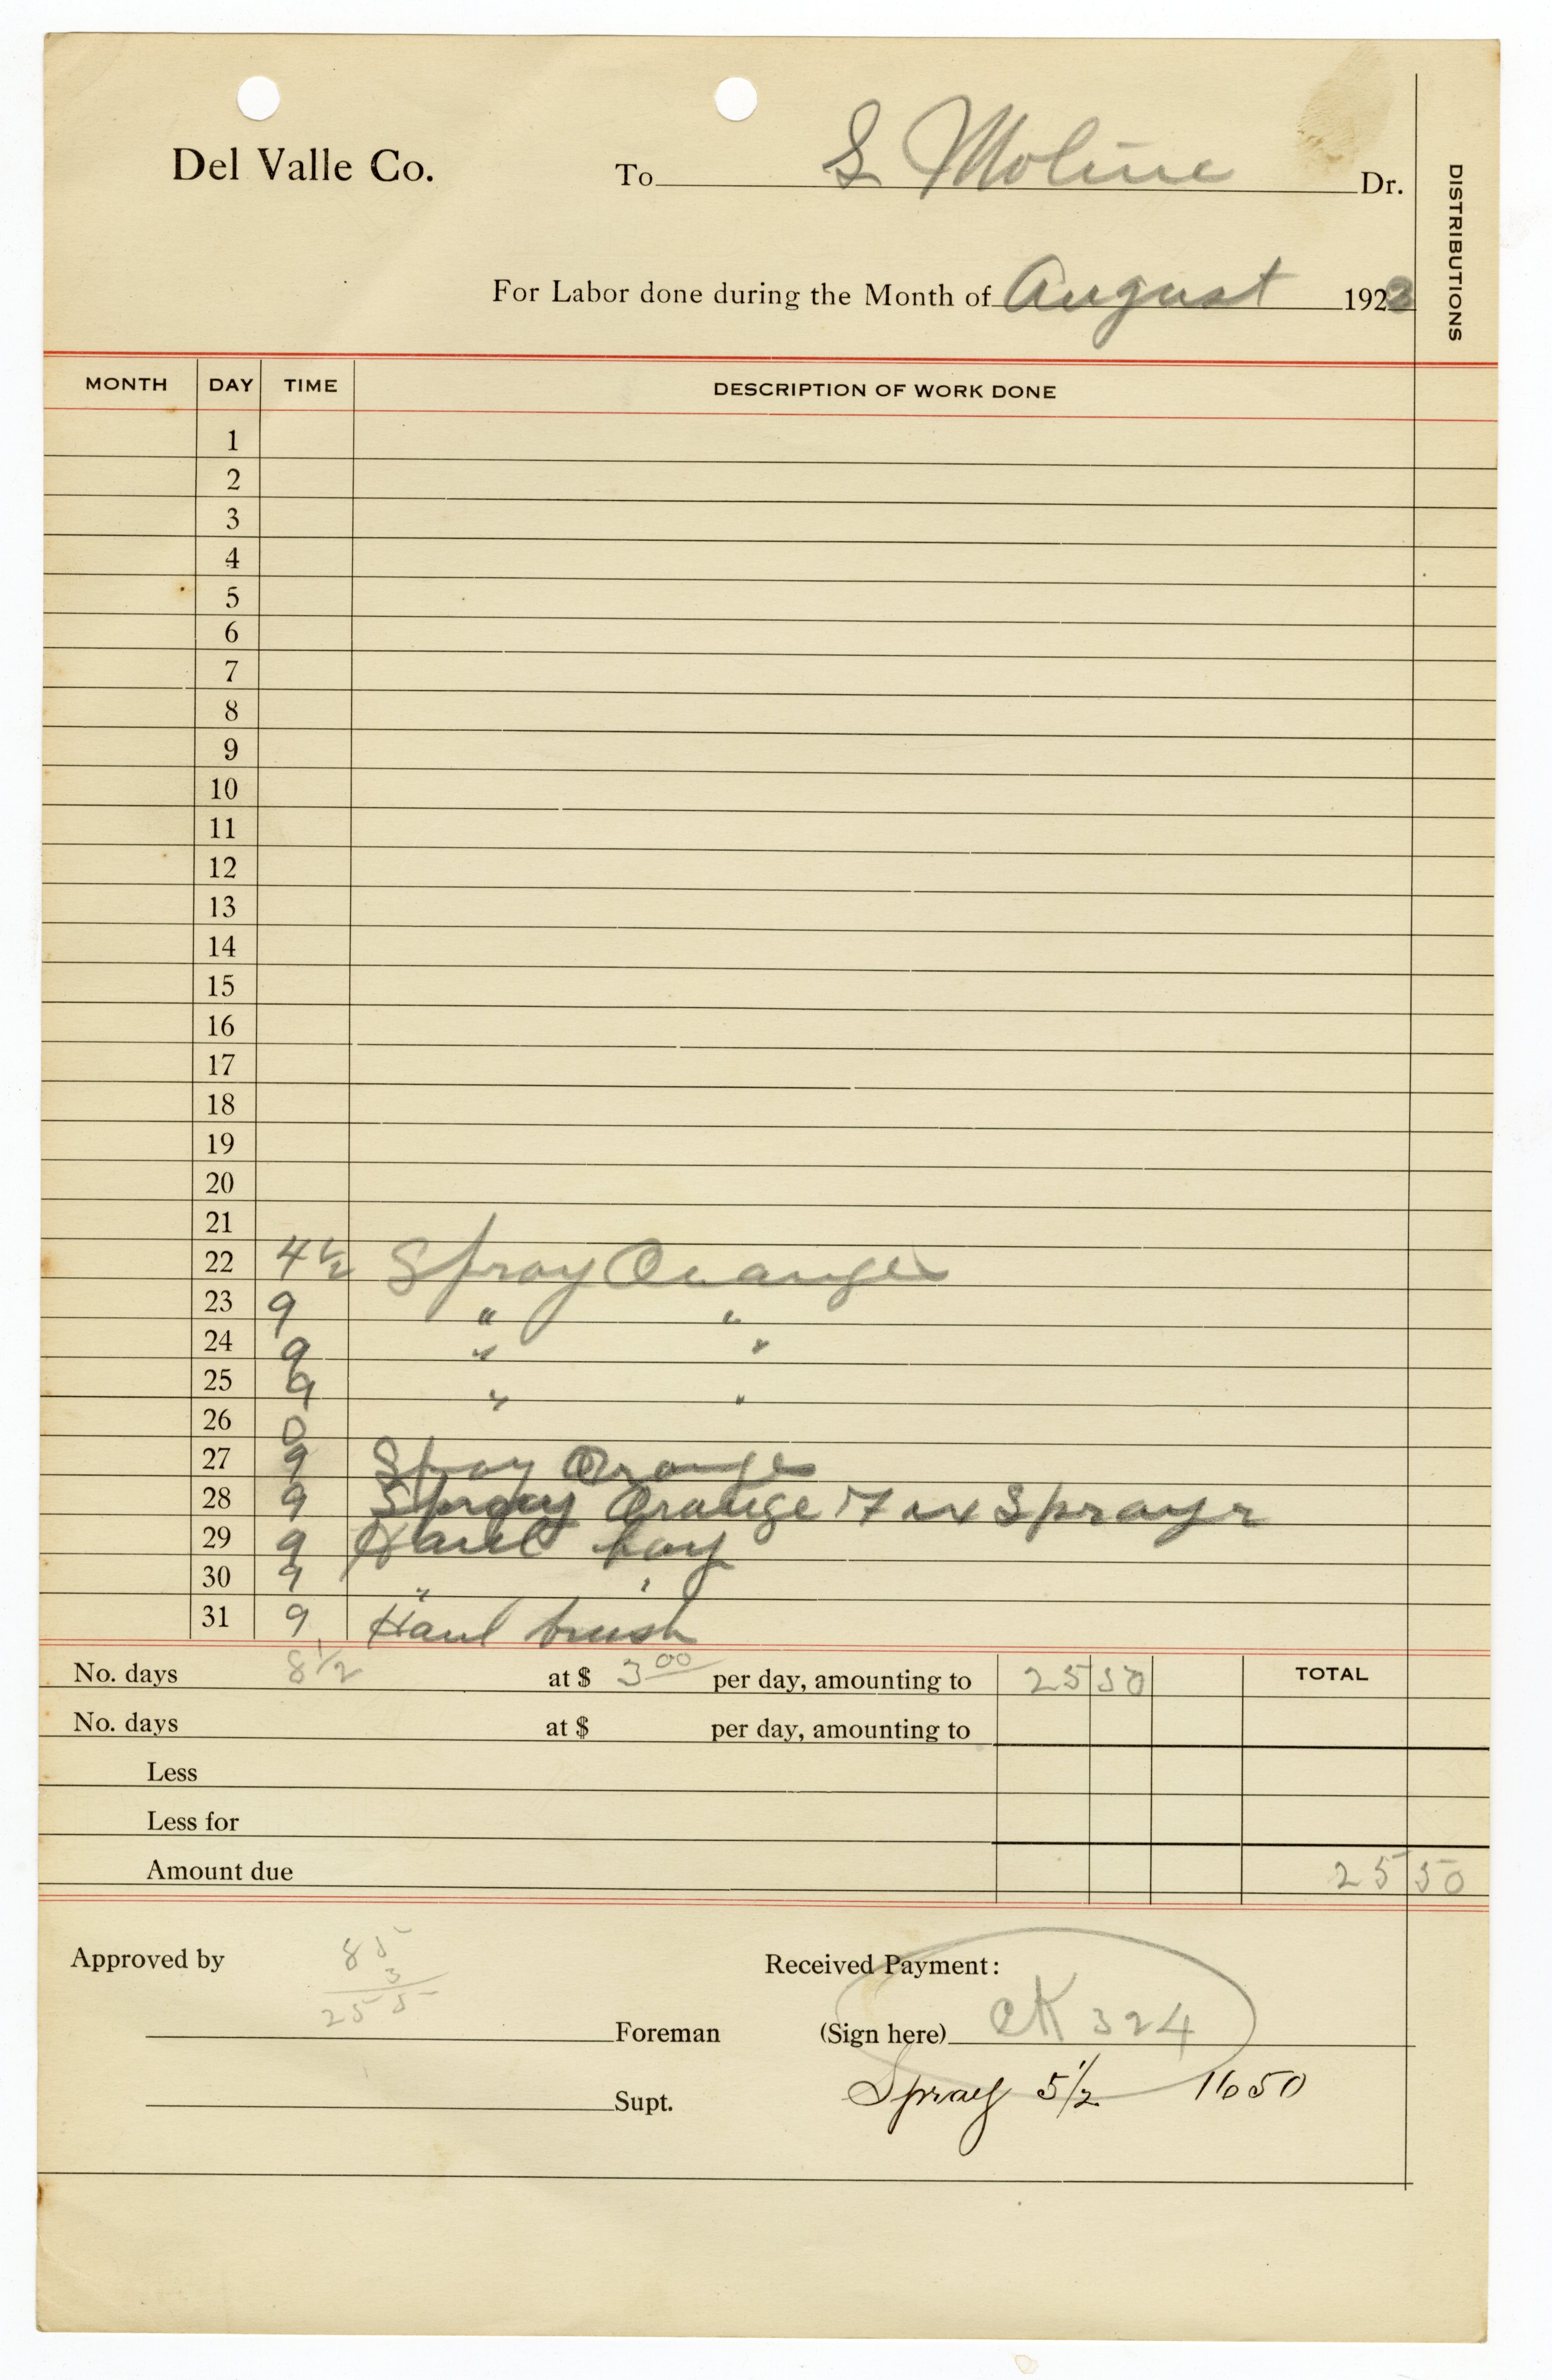 Del Valle Co.
To S Moline Dr.
DISTRIBUTIONS
For Labor done during the Month of August 1923
MONTH DAY TIME DESCRIPTION OF WORK DONE
1
2
3
4
5
6
7
8
9
10
11
12
13
14
15
16
17
18
19
20
21
22 4 1/2 Spray Oranges
23 9 " "
24 9 " "
25 9 " "
26 0
27 9 Spray Oranges
28 9 Spray Orange Sprayr
29 9 Haul hay
30 9 " "
31 9 Haul brush
No. days 8 1/2 at $ 3 00 per day, amounting to 25 50 TOTAL
No. days at $ per day, amounting to
Less
Less for
Amount due 25 50
Approved by
85
3
255
Received Payment:
Foreman
(Sign here) CK 324
Supt.
Spray 5 1/2 1650